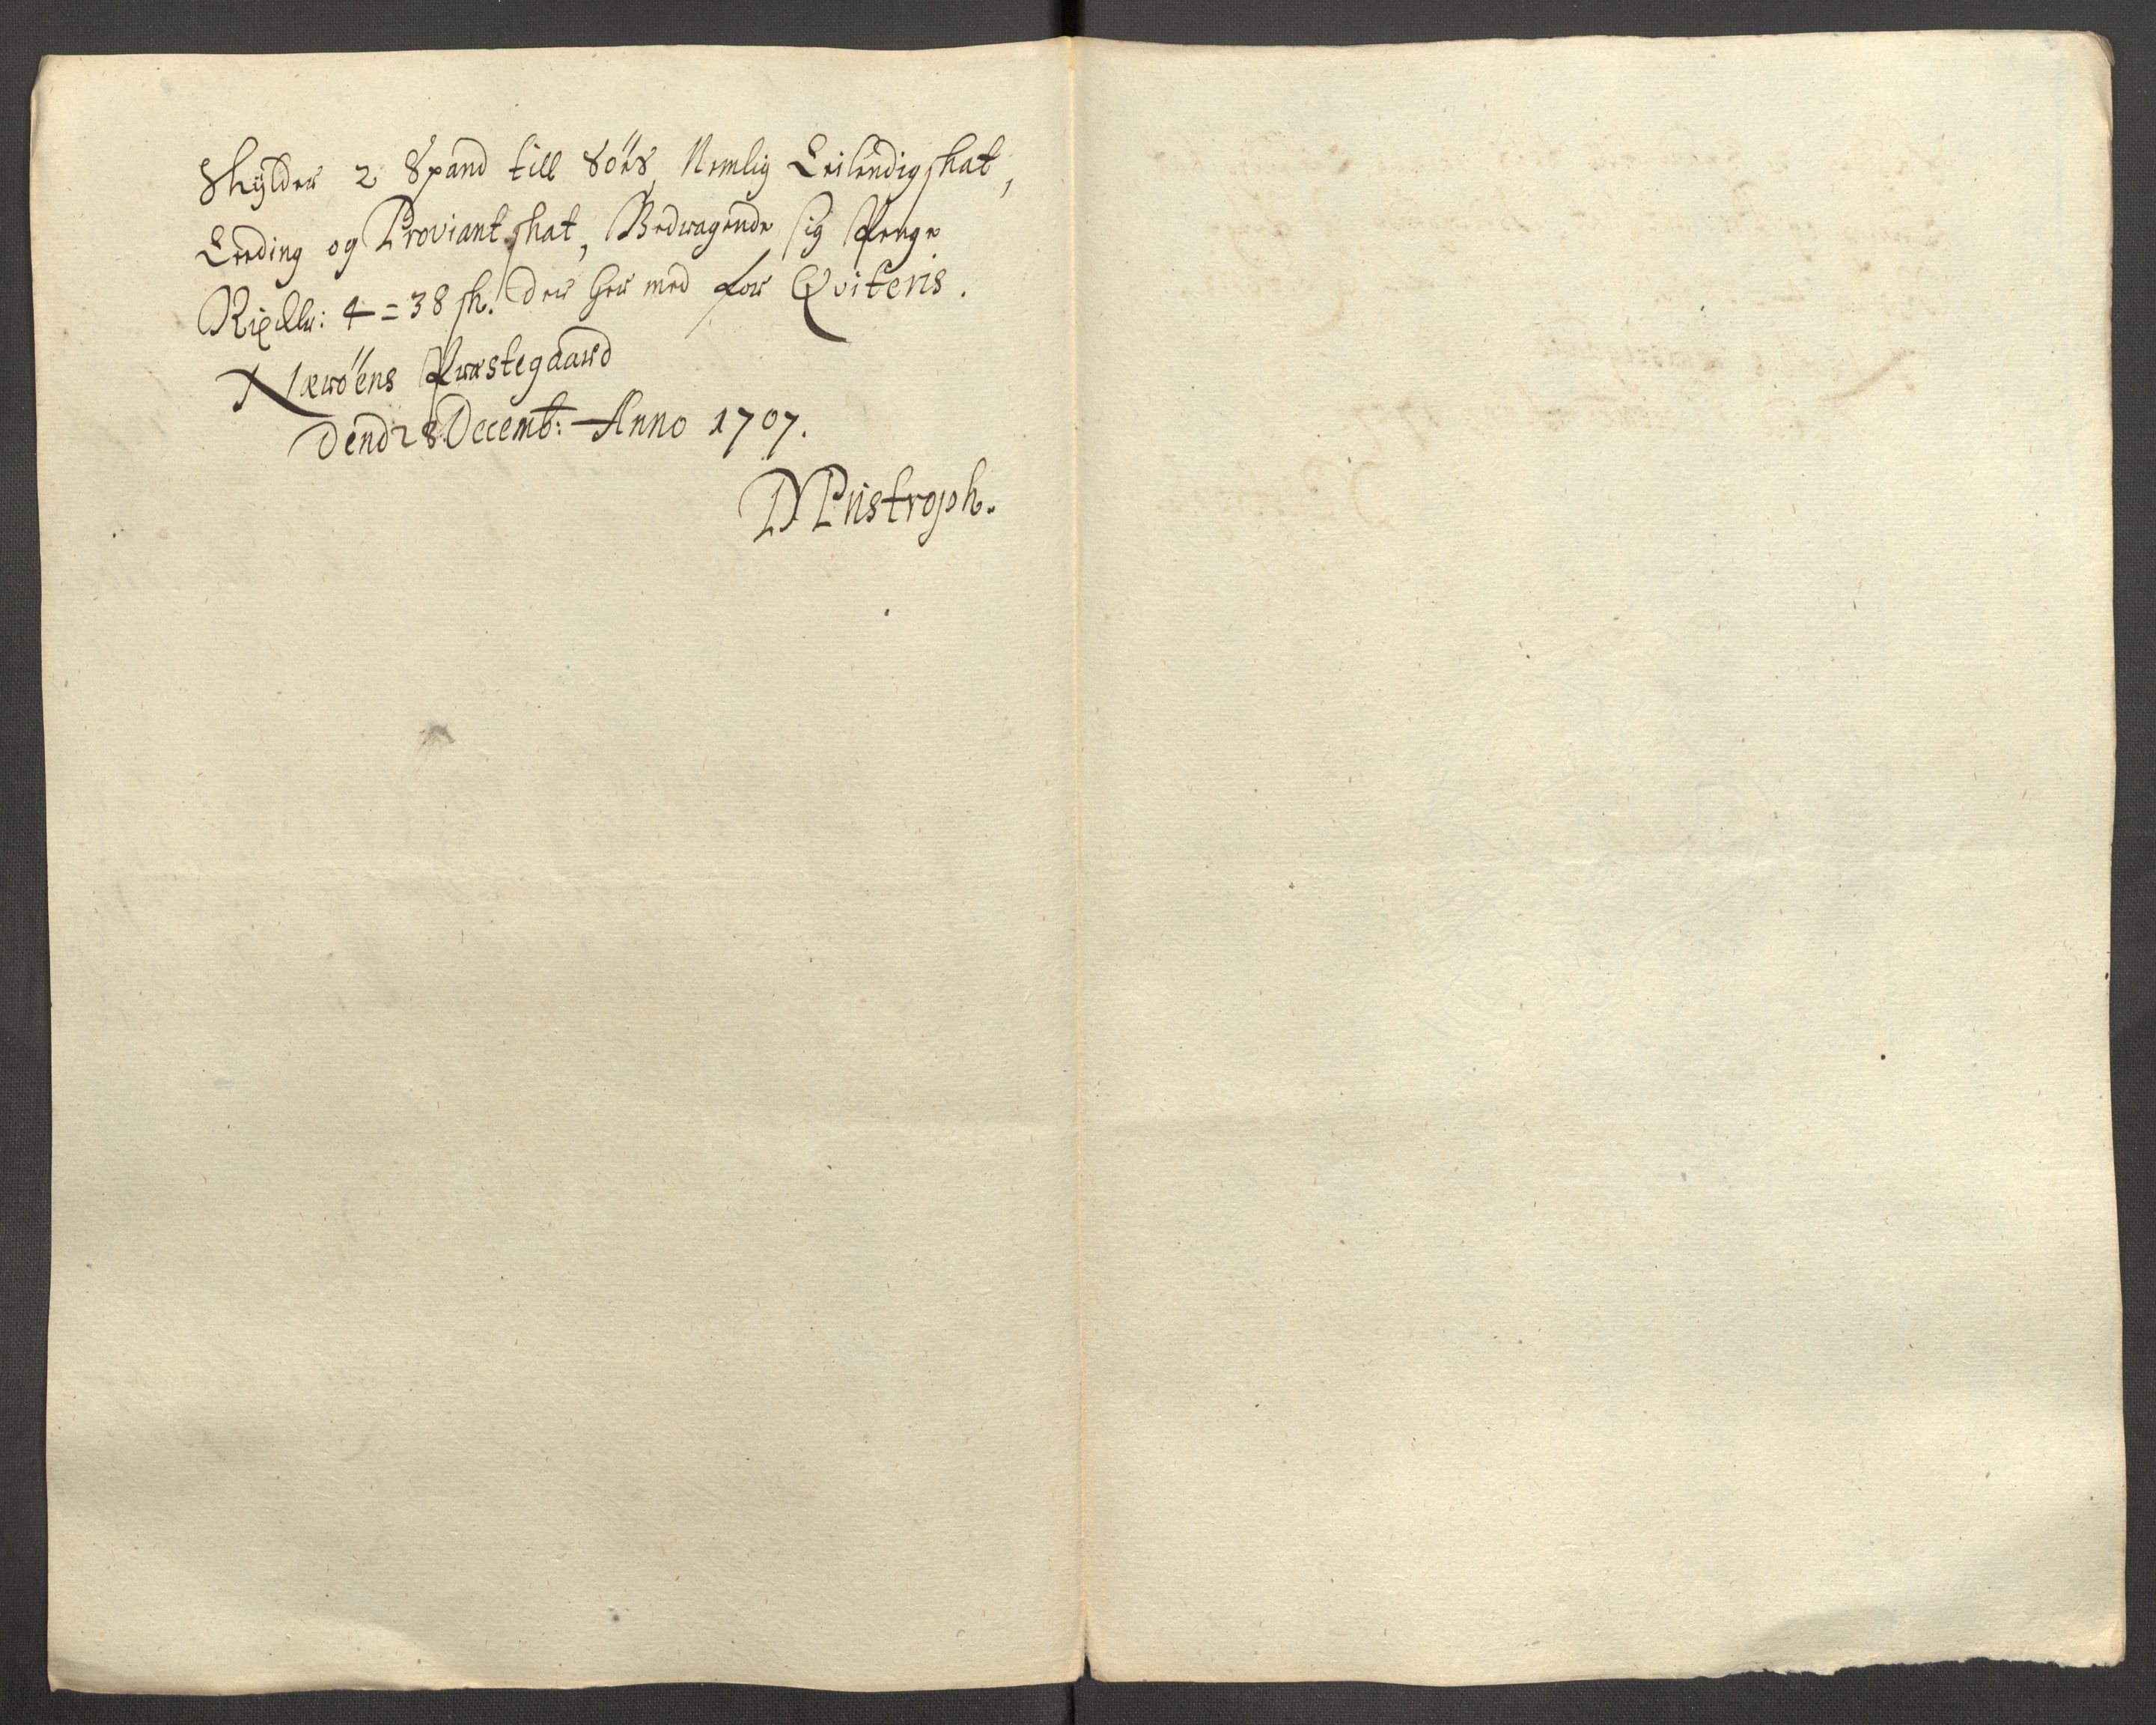 Skylder 2 Spand till 8 örs, Nemlig Leilendigskat,
Leeding og Proviantskat, Bedragende sig Penge
Rixdlr: 4 = 38 sk. der her med for Qviteris.
Næröens Præstegaard
Dend 28 Decemb: Anno 1707.
D Pristroph.